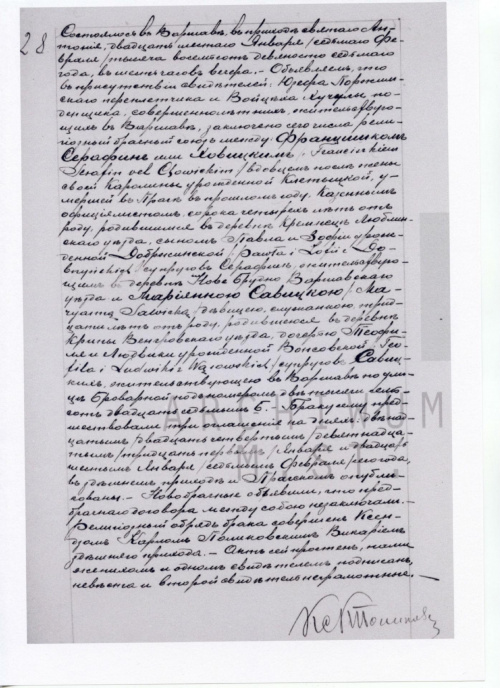 28
Состоялось въ Варшавѣ, въ приходѣ святаго Ан-
тонія, двадцать шестаго Января /седьмаго Фе-
враля/ тысяча восемьсотъ девяносто седьмаго
года, въ шесть часовъ вечера. - Объявляемъ, что
въ присутствіи свидѣтелей: Юзефа
скаго переплетчика и Войцѣха по-
денщика, совершеннолѣтнихъ, жительствую-
щихъ въ Варшавѣ, заключенъ сего числа рели-
гіозный брачный союзъ между: Францишкомъ
Серафинъ или Ховицкимъ, /Franciszkiem
Serafin vel Chowickim/ вдовцемъ послѣ жены
своей Каролины урожденной у-
мершей въ Прагѣ въ прошломъ году, казеннымъ
оффиціалистомъ, сорока четырехъ лѣтъ отъ
роду, родившимся въ деревнѣ Люблин-
скаго уѣзда, сыномъ Павла и Зофіи урож-
денной Добрысинской /Pawła i Zofii z Do-
супруговъ Серафинъ, жительствую-
щимъ въ деревнѣ Нове Брудно Варшавскаго
уѣзда и Маріянною Савицкою /Ma-
ryanną Sawicką/ дѣвицею, служанкою, трид-
цати лѣтъ отъ роду, родившеюся въ деревнѣ
Крыпы Венгровскаго уѣзда, дочерью Теофи-
ля и Людвики урожденной Вонсовской /Teo-
fila i Ludwiki z Wąsowskich/ супруговъ Савиц-
кихъ, жительствующею въ Варшавѣ по ули-
цѣ Броварной подъ номеромъ двѣ тысячи семь-
сотъ двадцать седьмымъ Б. - Браку сему пред-
шествовали три оглашенія на дняхъ: двѣнад-
цатымъ /двадцать четвертымъ/, девятнадца-
тымъ /тридцать первымъ/ Января и двадцать
шестымъ Января /седьмымъ Февраля/ сего года,
въ здѣшнемъ приходѣ и Прагскомъ опубли-
кованы. - Новобрачные объявили, что пред-
брачнаго договора между собою не заключали. -
Религіозный обрядъ брака совершенъ Ксен-
дзомъ Каролемъ Викаріемъ
здѣшняго прихода. - Актъ сей прочтенъ, нами
женихомъ и однимъ свидѣтелемъ подписанъ,
невѣста и второй свидѣтель неграмотные. -
ARCHIWUM